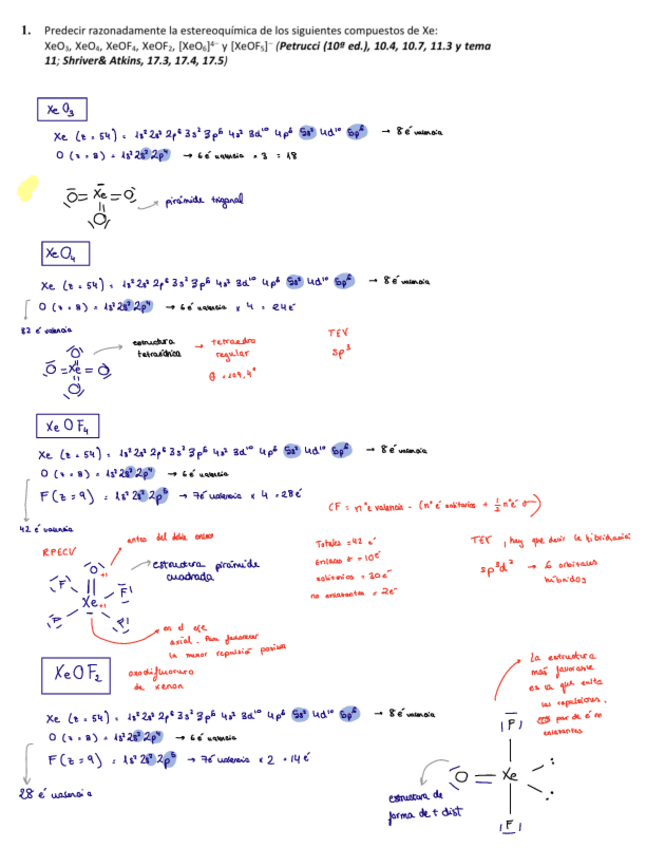 1. Predecir razonadamente la estereoquímica de los siguientes compuestos de Xe:
XeO₃, XeO₄, XeOF₄, XeOF₂, [XeO₆]⁴⁻ y [XeOF₅]⁻ (Petrucci (10ª ed.), 10.4, 10.7, 11.3 y tema
11; Shriver& Atkins, 17.3, 17.4, 17.5)
XeO₃
Xe (z = 54) = 1s² 2s² 2p⁶ 3s² 3p⁶ 4s² 3d¹⁰ 4p⁶ 5s² 4d¹⁰ 5p⁶ → 8 é valencia
O (z = 8) = 1s² 2s² 2p⁴ → 6 é valencia × 3 = 18
O = Xe = O
O
pirámide trigonal
XeO₄
Xe (z = 54) = 1s² 2s² 2p⁶ 3s² 3p⁶ 4s² 3d¹⁰ 4p⁶ 5s² 4d¹⁰ 5p⁶ → 8 é valencia
O (z = 8) = 1s² 2s² 2p⁴ → 6 é valencia × 4 = 24 é
32 é valencia
O
O = Xe = O
O
estructura
tetraédrica
→ tetraedro
regular
θ = 109,4°
TEV
sp³
XeOF₄
Xe (z = 54) = 1s² 2s² 2p⁶ 3s² 3p⁶ 4s² 3d¹⁰ 4p⁶ 5s² 4d¹⁰ 5p⁶ → 8 é valencia
O (z = 8) = 1s² 2s² 2p⁴ → 6 é valencia
F (z = 9) = 1s² 2s² 2p⁵ → 7 é valencia × 4 = 28 é
42 é valencia
CF = nº é valencia - (nº é solitarios + ½ nº é σ)
RPECV
antes del doble enlace
estructura pirámide
cuadrada
O
F F
Xe
F F
en el eje
axial. Para favorecer
la menor repulsión posible
Totales = 42 é
Enlace σ = 10 é
solitarios = 30 é
no enlazantes = 2 é
TEV, hay que decir la hibridación
sp³d² → 6 orbitales
híbridos
XeOF₂
oxodifluoruro
de xenon
Xe (z = 54) = 1s² 2s² 2p⁶ 3s² 3p⁶ 4s² 3d¹⁰ 4p⁶ 5s² 4d¹⁰ 5p⁶ → 8 é valencia
O (z = 8) = 1s² 2s² 2p⁴ → 6 é valencia
F (z = 9) = 1s² 2s² 2p⁵ → 7 é valencia × 2 = 14 é
28 é valencia
La estructura
más favorable
es la que evita
las repulsiones
par de é no
enlazantes
F
O = Xe
F
estructura de
forma de t dist